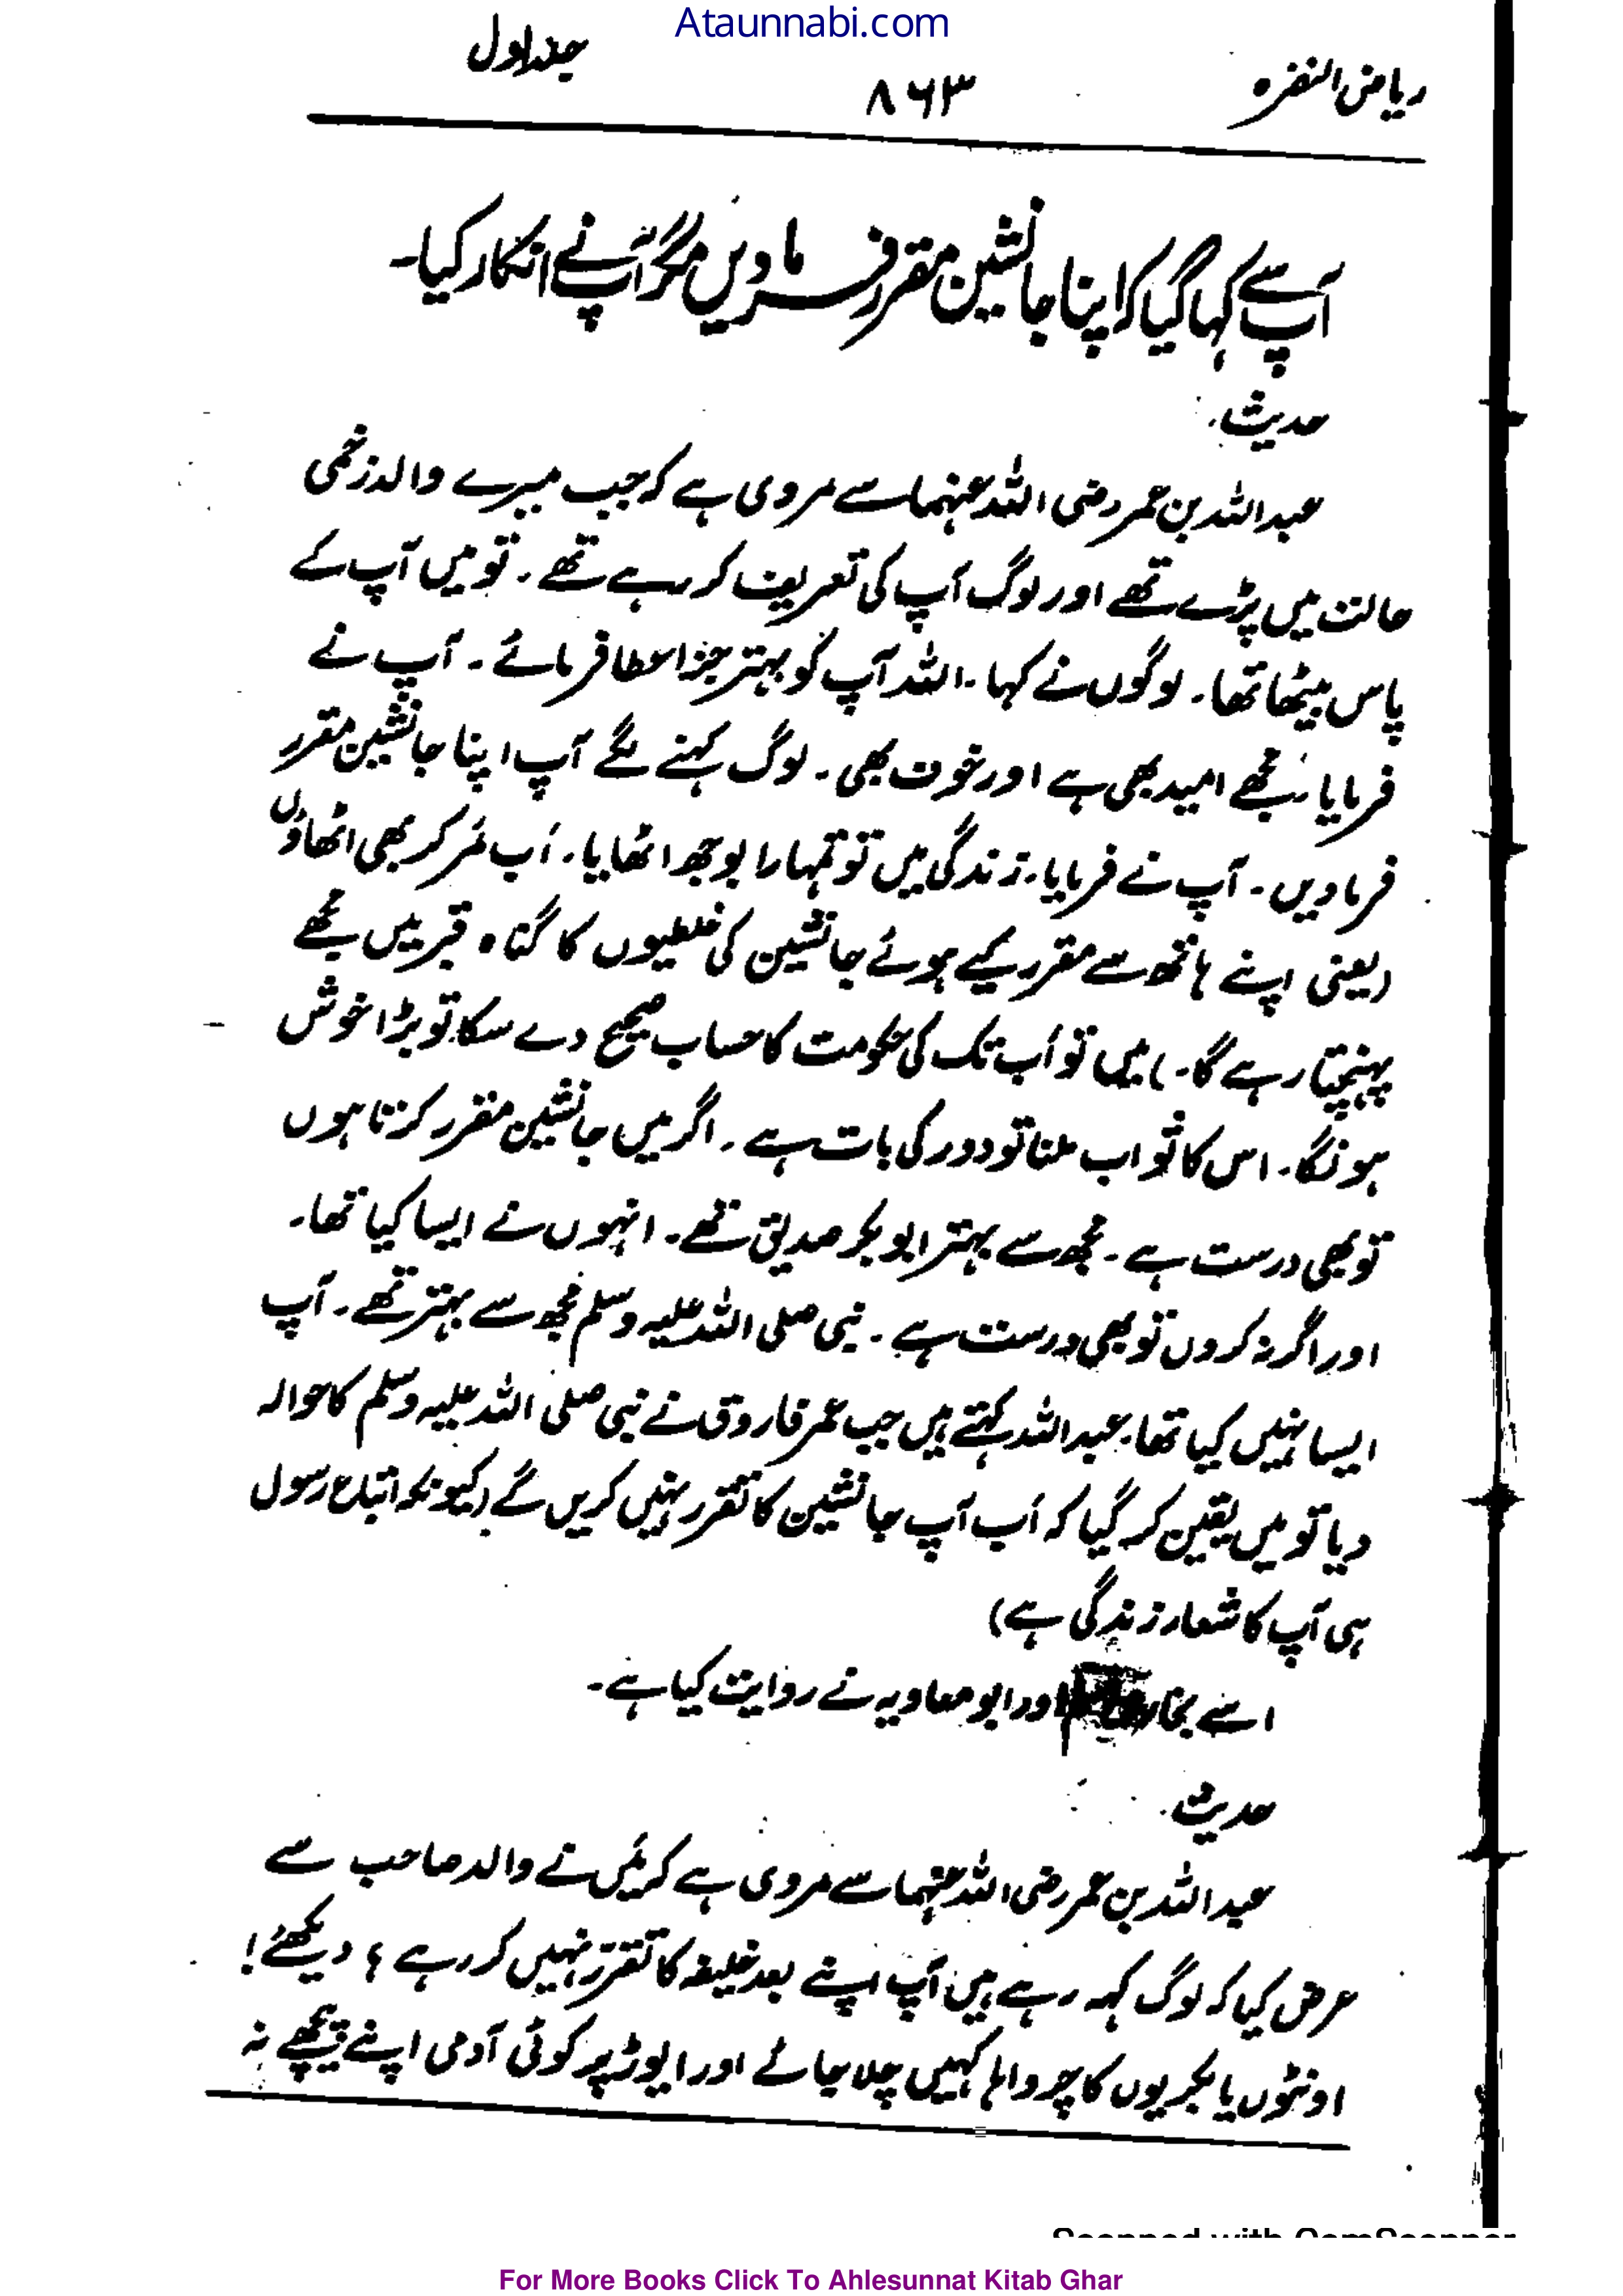 Ataunnabi.com
ریاض النضرہ ۸۶۳ جلد اول
آپ سے کہا گیا کہ اپنا جانشین مقرر فرما دیں مگر آپ نے انکار کیا۔
حدیث
عبد اللہ بن عمر رضی اللہ عنہما سے مروی ہے کہ جب میرے والد زخمی
حالت میں پڑے تھے اور لوگ آپ کی تعریف کر رہے تھے۔ تو میں آپ کے
پاس بیٹھا تھا۔ لوگوں نے کہا۔ اللہ آپ کو بہتر جزا عطا فرمائے۔ آپ نے
فرمایا۔ مجھے امید بھی ہے اور خوف بھی۔ لوگ کہنے لگے آپ اپنا جانشین مقرر
فرما دیں۔ آپ نے فرمایا۔ زندگی میں تو تمہارا بوجھ اٹھایا۔ اَب مَر کر بھی اٹھاؤں
(یعنی اپنے ہاتھ سے مقرر کیے ہوئے جانشین کی غلطیوں کا گناہ قبر میں مجھے
پہنچتا رہے گا۔) میں تو اَب تک کی حکومت کا حساب صحیح دے سکا تو بڑا خوش
ہونگا۔ اس کا ثواب ملنا تو دور کی بات ہے۔ اگر میں جانشین مقرر کرتا ہوں
تو بھی درست ہے۔ مجھ سے بہتر ابوبکر صدیق تھے۔ انہوں نے ایسا کیا تھا۔
اور اگر نہ کروں تو بھی درست ہے۔ نبی صلی اللہ علیہ وسلم مجھ سے بہتر تھے۔ آپ
ایسا نہیں کیا تھا۔ عبد اللہ کہتے ہیں جب عمر فاروق نے نبی صلی اللہ علیہ وسلم کا حوالہ
دیا تو میں یقین کر گیا کہ اَب آپ جانشین کا تقرر نہیں کریں گے (کیونکہ اتباع رسول
ہی آپ کا شعار زندگی ہے)
اسے بخاری اور ابو معاویہ نے روایت کیا ہے۔
حدیث
عبد اللہ بن عمر رضی اللہ عنہما سے مروی ہے کہ میَں نے والد صاحب سے
عرض کیا کہ لوگ کہہ رہے ہیں آپ اپنے بعد خلیفہ کا تقرر نہیں کر رہے ؟ دیکھئے!
اونٹوں یا بکریوں کا چرواہا کہیں چلا جائے اور ایوڑ پر کوئی آدمی اپنے پیچھے نہ
For More Books Click To Ahlesunnat Kitab Ghar